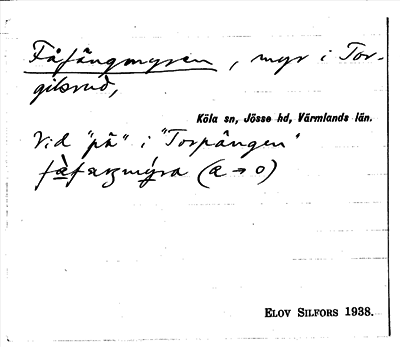 Fåfängmyren, myr i Tor-
gilsrud,
Köla sn, Jösse hd, Värmlands län.
Vid "på" i "Torpången"
fàfaŋmýra (a → o)
ELOV SILFORS 1938.